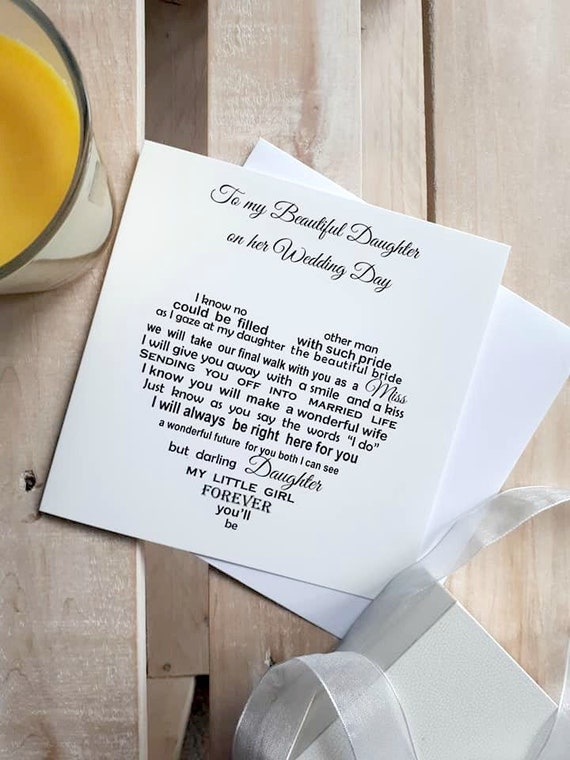 To my Beautiful Daughter
on her Wedding Day
I know no other man
could be filled with such pride
as I gaze at my daughter the beautiful bride
we will take our final walk with you as a Miss
I will give you away with a smile and a kiss
SENDING YOU OFF INTO MARRIED LIFE
I know you will make a wonderful wife
Just know as you say the words "I do"
I will always be right here for you
a wonderful future for you both I can see
but darling Daughter
MY LITTLE GIRL
FOREVER
you'll
be